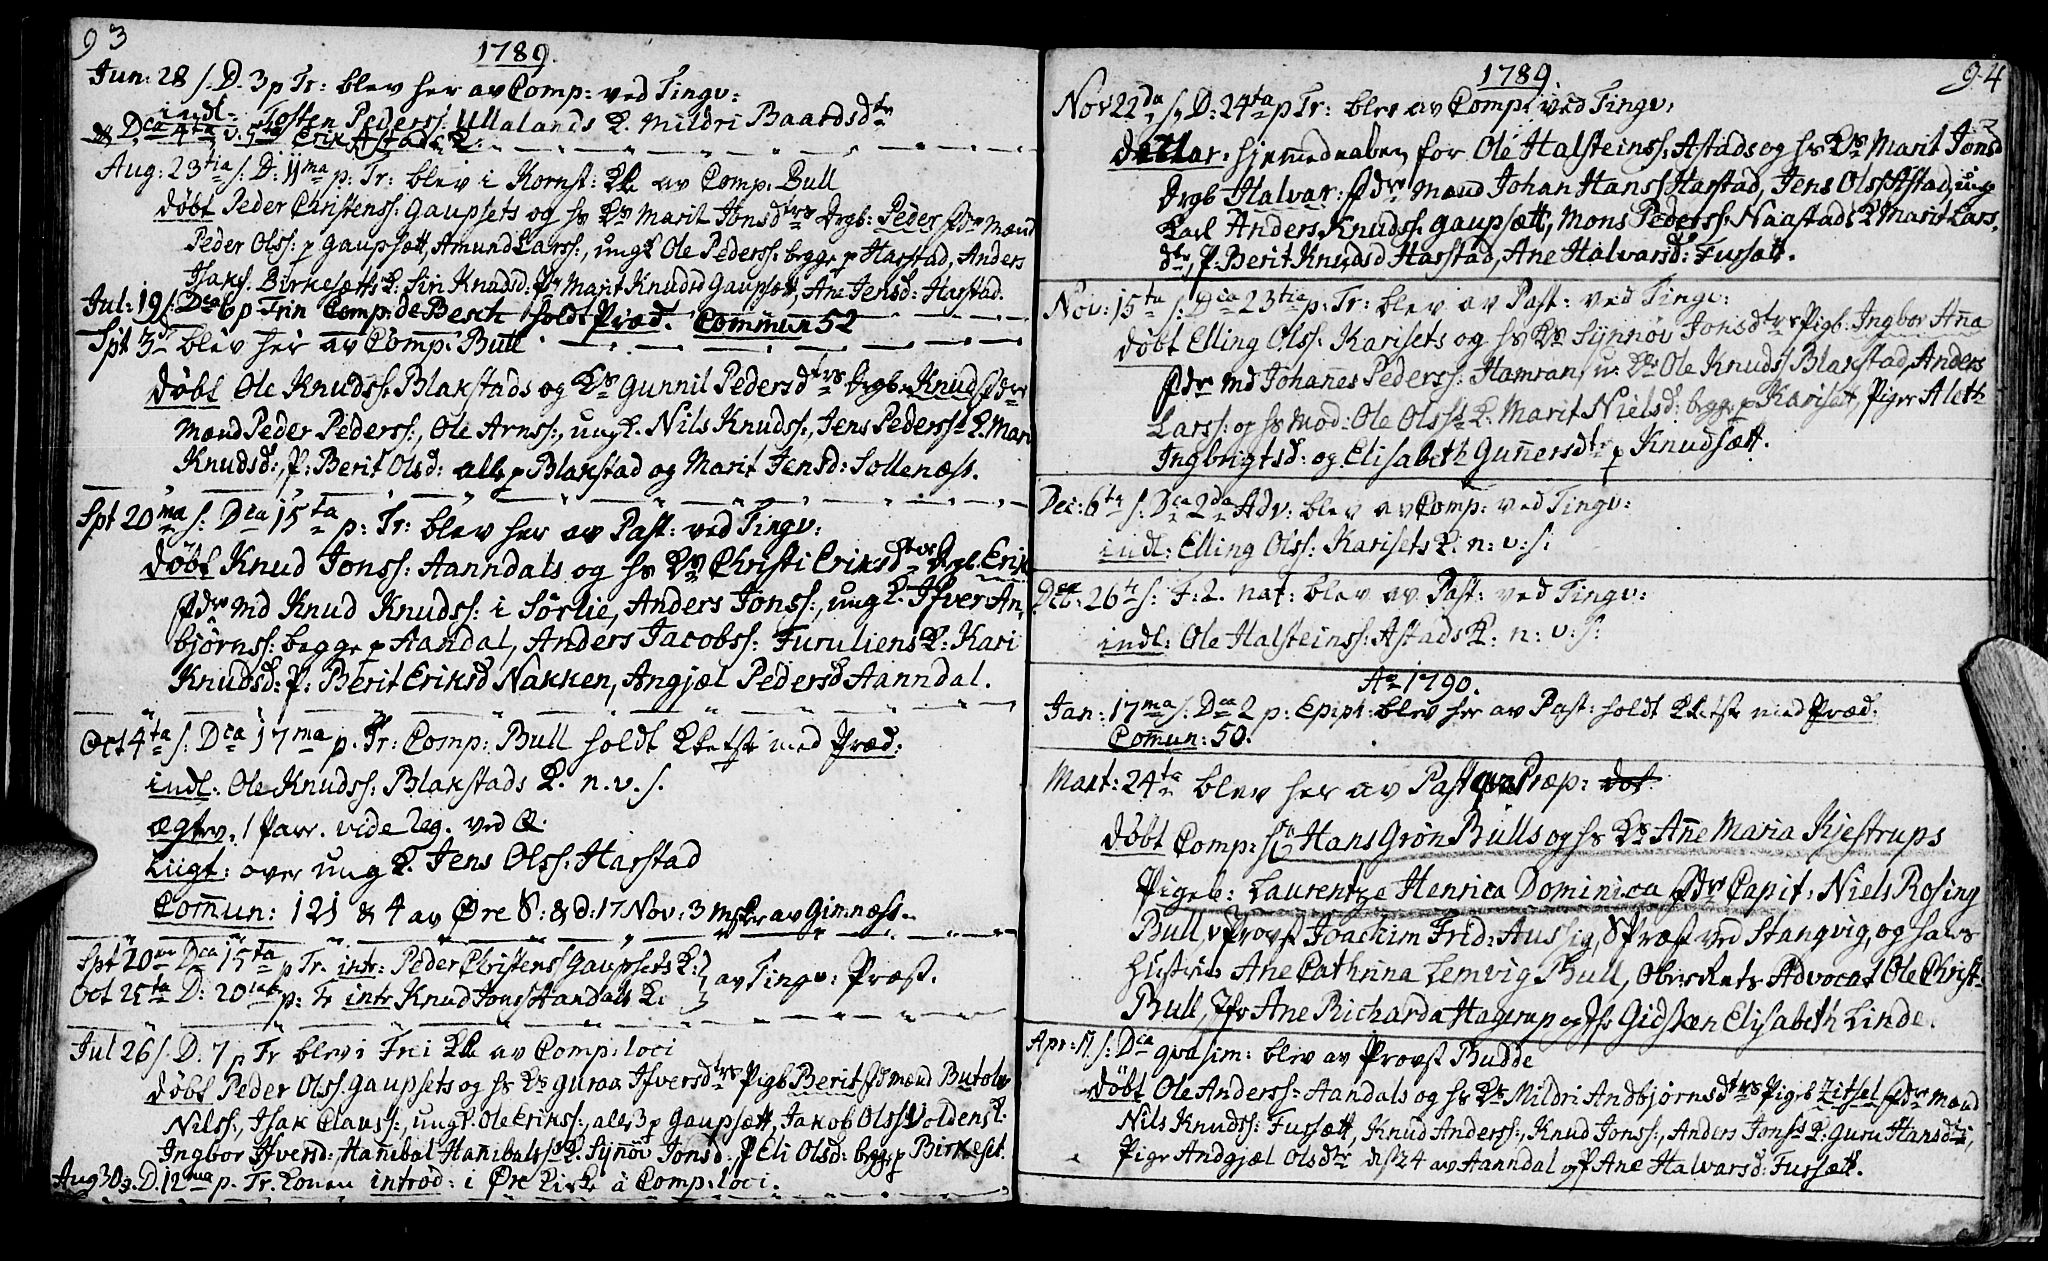 93
1789.
Jun: 28 s. D. 3 p Tr: blev her av Comp: ved Tingv:
indl: Tosten Peders: Ullalands K. Mildri Baardsdtr
& Dca 4ta v. 5ta Erik Astads K.
Aug: 23tia s: D: 11ma p: Tr: blev i Kornst: Kk av Comp: Bull
döbt Peder Christenss: Gaupsets og hs Ks Marit Jonsdtrs Drgb: Peder Fdr Mænd
Peder Olss: p Gaupsætt, Amund Larss:, ungk Ole Peders: begge p Harstad, Anders
Isaks: Birkesætts K: Siri Knudsd: P: Marit Knudsd Gaupsett, Ane Jensd: Harstad.
Jul: 19 s: Dca 6 p Trin Comp: de Besch holdt Præd. Commun 52
Spt 3d blev her av Comp: Bull
döbt Ole Knuds: Blakstads og Ks Gunnil Pedersdtrs drgb: Knud Fdr
Mænd Peder Peders:, Ole Arns:, ungk. Nils Knuds:, Jens Peders: K. Mari
Knudsd:, P: Berit Olsd: alle p Blakstad og Marit Jensd: Sollenæss.
Spt 20ma s: Dca 15ta p: Tr: blev her av Past: ved Tingv:
döbt Knud Jonss: Aanndals og hs Ks Christi Eriksdtrs Drgb. Erik
Fdr Md Knud Knuds: i Sörlie, Anders Jonss:, ungk. Ifver An-
björnss: begge p Aandal, Anders Jacobss: Furuliens K: Kari
Knudsd: P: Berit Eriksd Nakken, Angjæl Pedersd Aanndal.
Oct 4ta s: Dca 17ma p. Tr: Comp: Bull holdt Kketst med Præd:
indl: Ole Knuds: Blakstads K. n. v. s.
ægtev. 1 Parr. vide Leg. ved
Liigt: over ung K. Jens Olss: Harstad
Comun: 121 & 4 av Øre S: & d: 17 Nov: 3 av Gimnæss.
Spt 20ma Dca 15ta p Tr. intr: Peder Christenss Gaupsets K: } av Tingv: Præst.
Oct 25ta D: 20 p: Tr intr Knud Jonss Aandals K:
Jul 26 s. D. 7 p Tr blev i Frei Kk av Comp: loci
döbt Peder Olss. Gaupsets og hs Ks Guroa Ifversdtrs Pigb Berit Fd Mænd Butolv
Nilss:, Isak Clauss:, ungk. Ole Erikss:, alle 3 p Gaupsætt, Jakob Olss Voldens K.
Ingbor Ifversd:, Hanibal Hanibalss K. Synöv Jonsd:, P Eli Olsd: begge p Birkeset.
Aug 30 s. D. 12ma p. Tr. konen introd: i Øre Kirke à Comp: loci.
1789.
94
Nov 22da s, D: 24ta p Tr: blev av Comp: ved Tingv:
hjemedaaben for Ole Halsteinss: Astads og hs Ks Marit Jonsd
Drgb Halvar: Fdr Mænd Johan Hanss Harstad, Jens Olss Astad, ung
Karl Anders Knuds: Gaupsætt, Mons Peders: Naastads K Marit Lars-
dtr, P: Berit Knudsd Harstad, Ane Halvarsd: Fursætt.
Nov: 15ta s: Dca 23tia p: Tr: blev av Past: ved Tingv:
döbt Elling Olss: Karisets og hs Ks Synnöv Jonsdtrs Pigb: Ingbor Ana
Fdr Md Johanes Peders: Hamran, Ole Knuds Blakstad, Anders
Larss: og hs Mod: Ole Olss K. Marit Nielsd: begge p Karisett, Piger Aleth
Ingbrigtsd: og Elisabeth Gunersdtr p Knudsætt.
Dec: 6ta s: Dca 2da Adv: blev av Comp: ved Tingv:
indl: Elling Olss: Karisets K. n: v: s:
Dec: 26 s: F: 2. nat: blev av Past: ved Tingv:
indl: Ole Halsteinss: Astads K: n: v: s:
Ao 1790.
Jan: 17ma s: Dca 2 p: Epiph: blev her av Past: holdt Kketst med Præd:
Comun: 50.
Mart: 24ta blev her av Past qva Præp: dot
döbt Comp: Hans Grøn Bulls og hs Ks Ane Maria Kjestrups
Pigeb: Laurentze Henrica Dominica Fdr Capit: Niels Rosing
Bull, Provst Joachim Frid: Aussig, SPræst ved Stangvig, og hans
Hustrue Ane Cathrina Lemvig Bull, OberRets Advocat Ole Christ-
Bull, Jfr Ane Richarda Hagerup og Jfr Gidsken Elisabeth Linde.
Apr: 11 s: Dca qvasim: blev av Provst Budde
döbt Ole Anderss: Aandals og hs Ks Mildri Andbjørnsdtrs Pigeb Zitsel Fdr Mænd
Nils Knuds: Fursætt, Knud Anderss:, Knud Jonss:, Anders Jonss K: Guru Hansdtr,
Piger Andgjæl Olsdtr av Aanndal og P Ane Halvarsd: Fursætt.